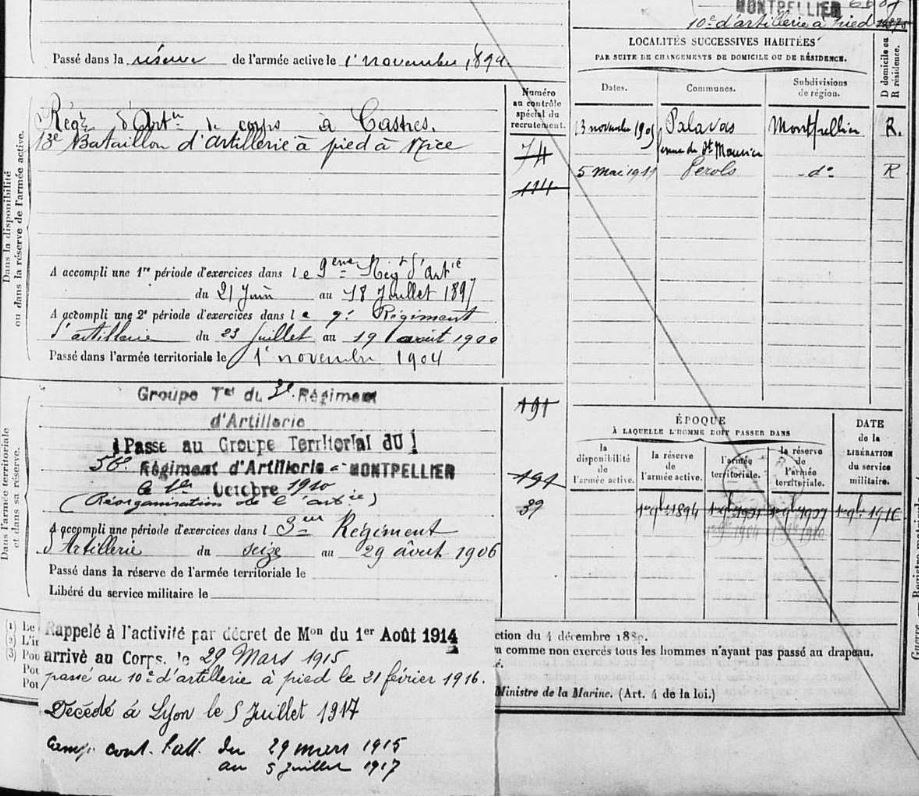 MONTPELLIER
10e d'artillerie à pied
Passé dans la réserve de l'armée active le 1 novembre 1894
Dans la disponibilité
ou dans la réserve de l'armée active.
Régt d'Artie de corps à Castres.
13e Bataillon d'artillerie à pied à Nice
A accompli une 1re période d'exercices dans le 9eme Régt d'Artie
du 21 Juin au 18 Juillet 1897
A accompli une 2e période d'exercices dans le 9e Régiment
d'artillerie du 23 Juillet au 19 août 1900
Passé dans l'armée territoriale le 1 novembre 1904
Numéro
au contrôle
spécial du
recrutement.
74
114
LOCALITÉS SUCCESSIVES HABITÉES
PAR SUITE DE CHANGEMENTS DE DOMICILE OU DE RÉSIDENCE.
D domicile ou
R résidence.
Dates. Communes. Subdivisions
de région.
13 novembre 1905 Palavas Montpellier R.
5 mai 1911 Perols do R
Dans l'armée territoriale
et dans sa réserve.
Groupe Tal du 3e Régiment
d'Artillerie
Passe au Groupe Territorial du
56e Régiment d'Artillerie à MONTPELLIER
le 1er Octobre 1910
(Réorganisation de l'artie)
A accompli une période d'exercices dans l 3eme Régiment
d'Artillerie du seize au 29 août 1906
Passé dans la réserve de l'armée territoriale le
Libéré du service militaire le
191
191
39
ÉPOQUE
À LAQUELLE L'HOMME DOIT PASSER DANS
DATE
de la
LIBÉRATION
du service
militaire.
la
disponibilité
de
l'armée active.
la réserve
de
l'armée active.
l'armée
territoriale.
la réserve
de
l'armée
territoriale.
Rappelé à l'activité par décret de Mon du 1er Août 1914
arrivé au Corps. le 29 Mars 1915
passé au 10e d'artillerie à pied le 21 février 1916.
Décédé à Lyon le 5 Juillet 1917
Camp. cont. l'all. du 29 mars 1915
au 5 juillet 1917
ction du 4 décembre 1889.
comme non exercés tous les hommes n'ayant pas passé au drapeau.
Ministre de la Marine. (Art. 4 de la loi.)